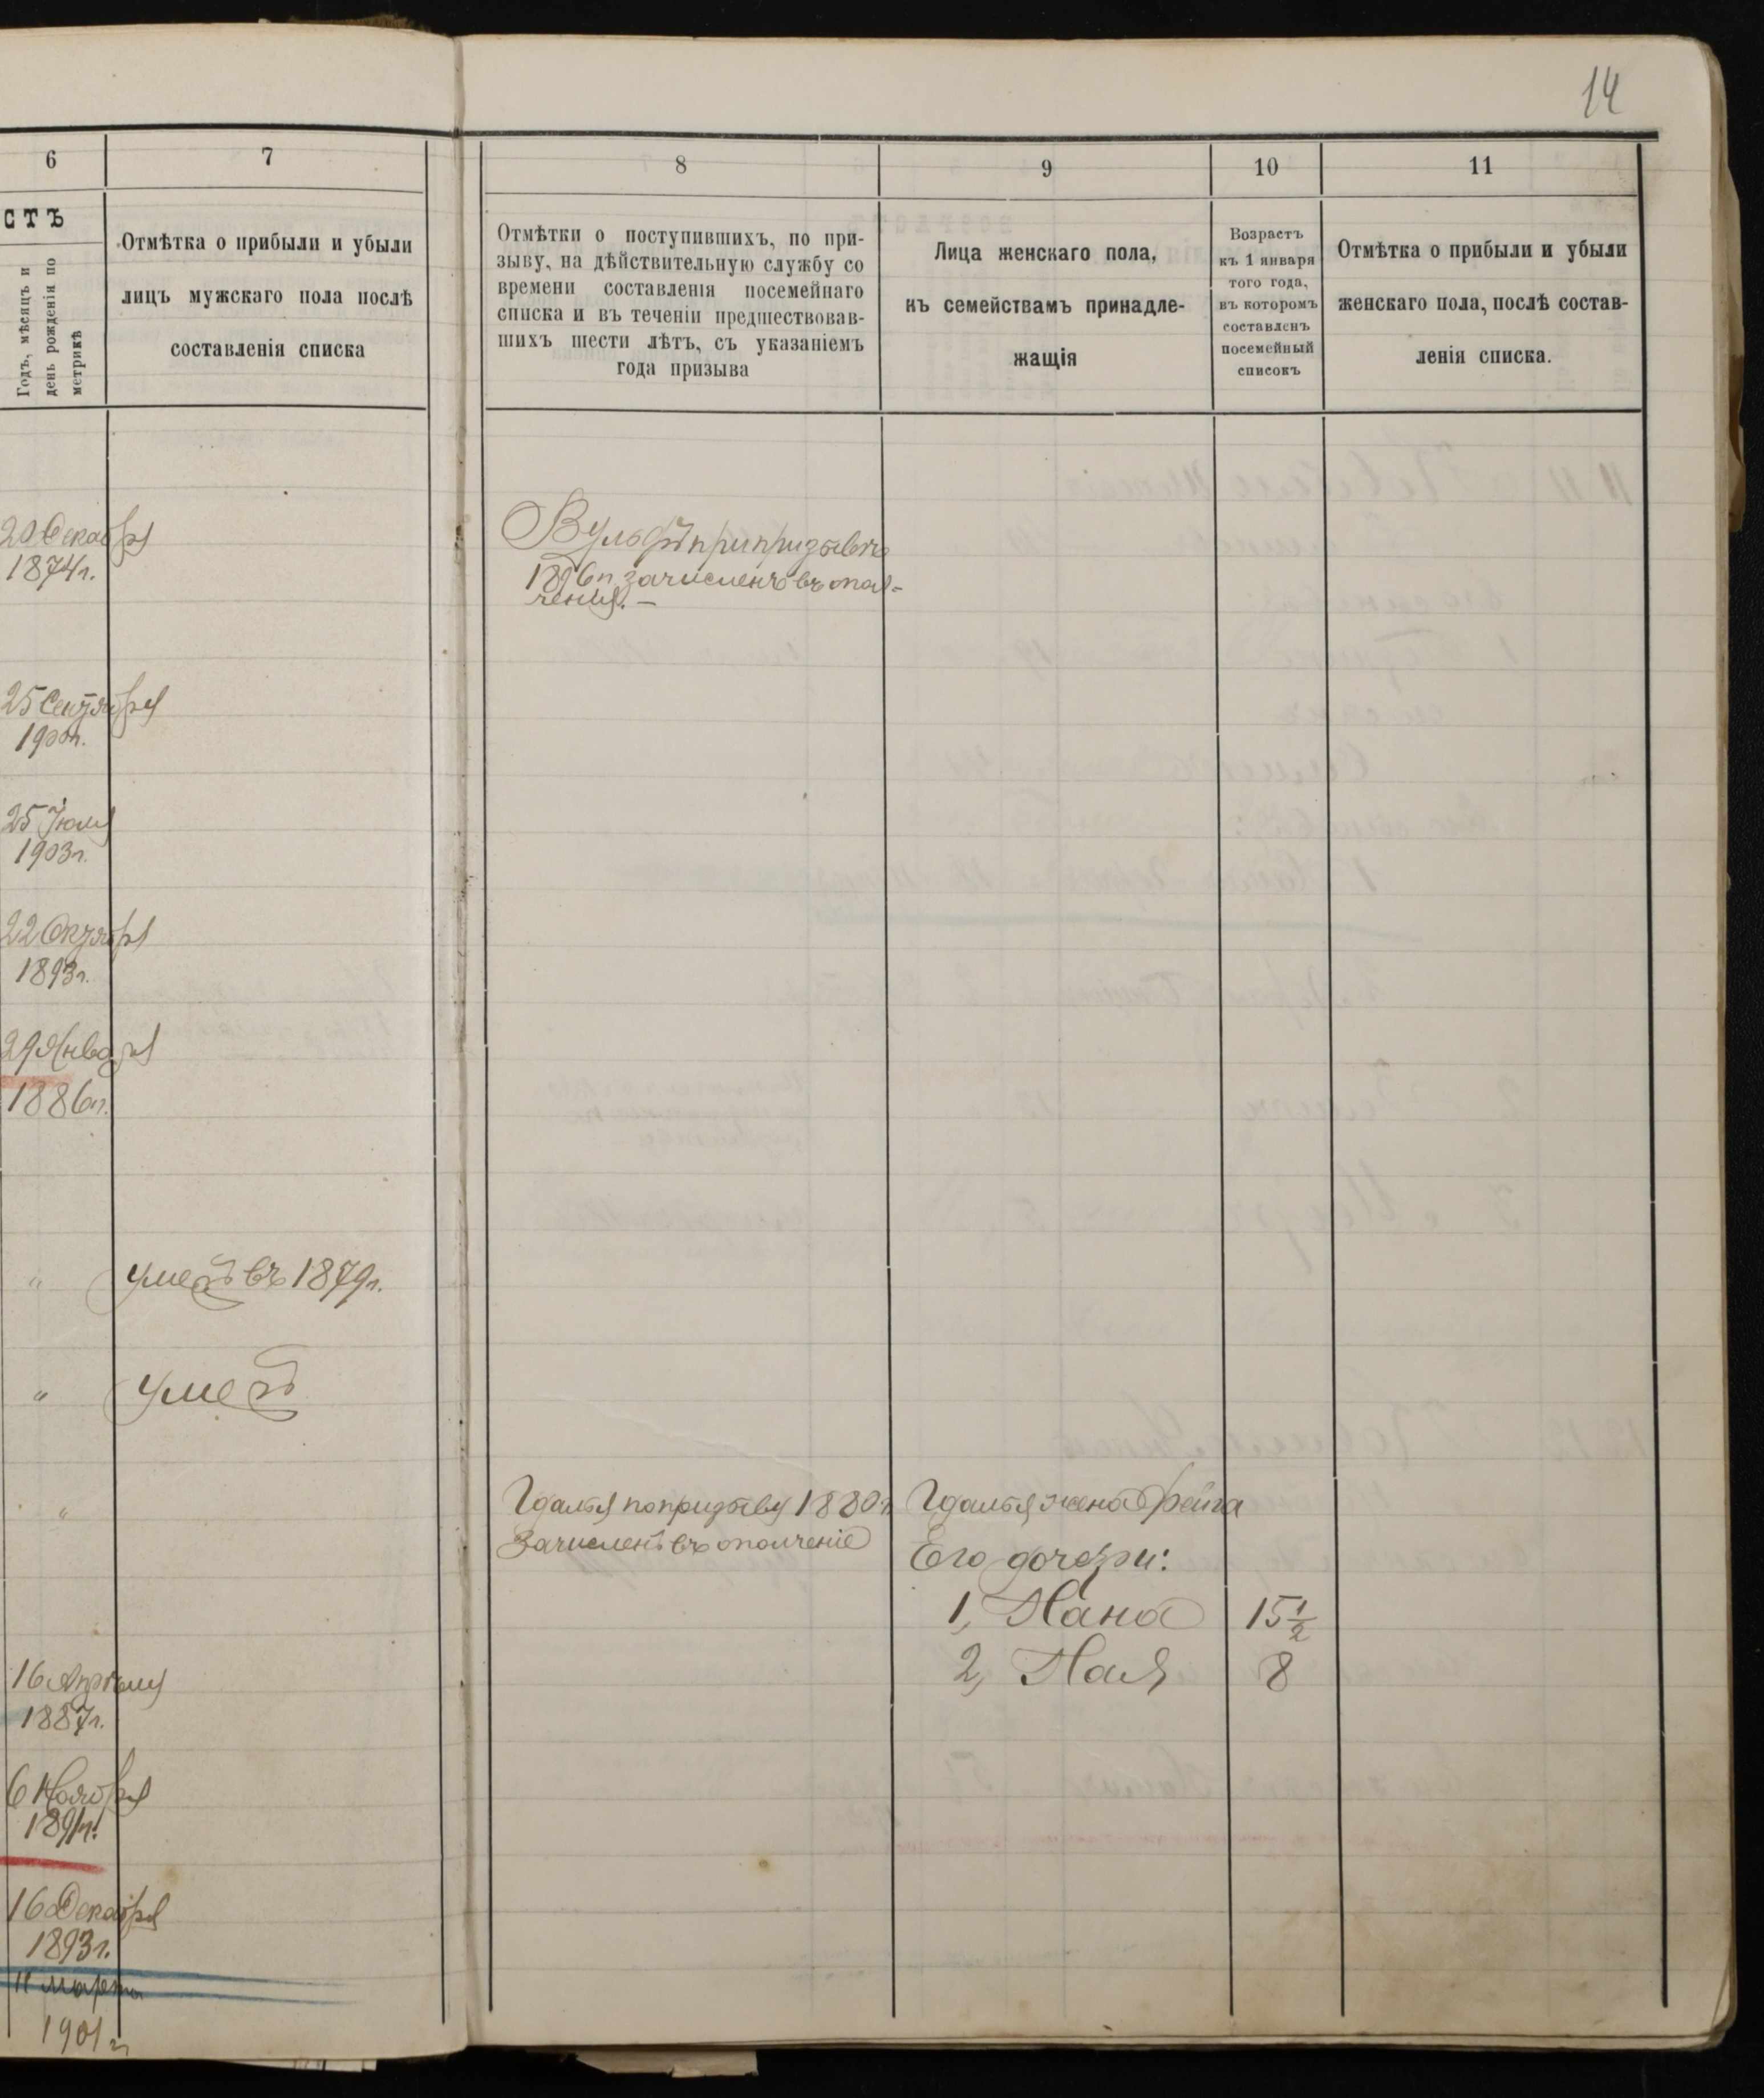 14
6
7
8
9
10
11
СТЪ
Годъ, мѣсяцъ и
день рожденія по
метрикѣ
Отмѣтка о прибыли и убыли
лицъ мужскаго пола послѣ
составленія списка
Отмѣтки о поступившихъ, по при-
зыву, на дѣйствительную службу со
времени составленія посемейнаго
списка и въ теченіи предшествовав-
шихъ шести лѣтъ, съ указаніемъ
года призыва
Лица женскаго пола,
къ семействамъ принадле-
жащія
Возрастъ
къ 1 января
того года,
въ которомъ
составленъ
посемейный
списокъ
Отмѣтка о прибыли и убыли
женскаго пола, послѣ состав-
ленія списка.
20 Декабря
1874г.
Вульфъ при призывѣ
1896г. зачисленъ въ опол-
ченія. —
25 Сентября
1900г.
25 Іюля
1903г.
22 Октября
1893г.
29 Января
1886г.
" умеръ въ 1879г.
" умеръ
"
Гдалья по призыву 1880г.
Зачисленъ въ ополченіе
Гдалья жена Фейга
Его дочери:
1, Хана 15½
2, Хая 8
16 Апрѣля
1887г.
6 Ноября
1891г.
16 Декабря
1893г.
11 марта
1901г